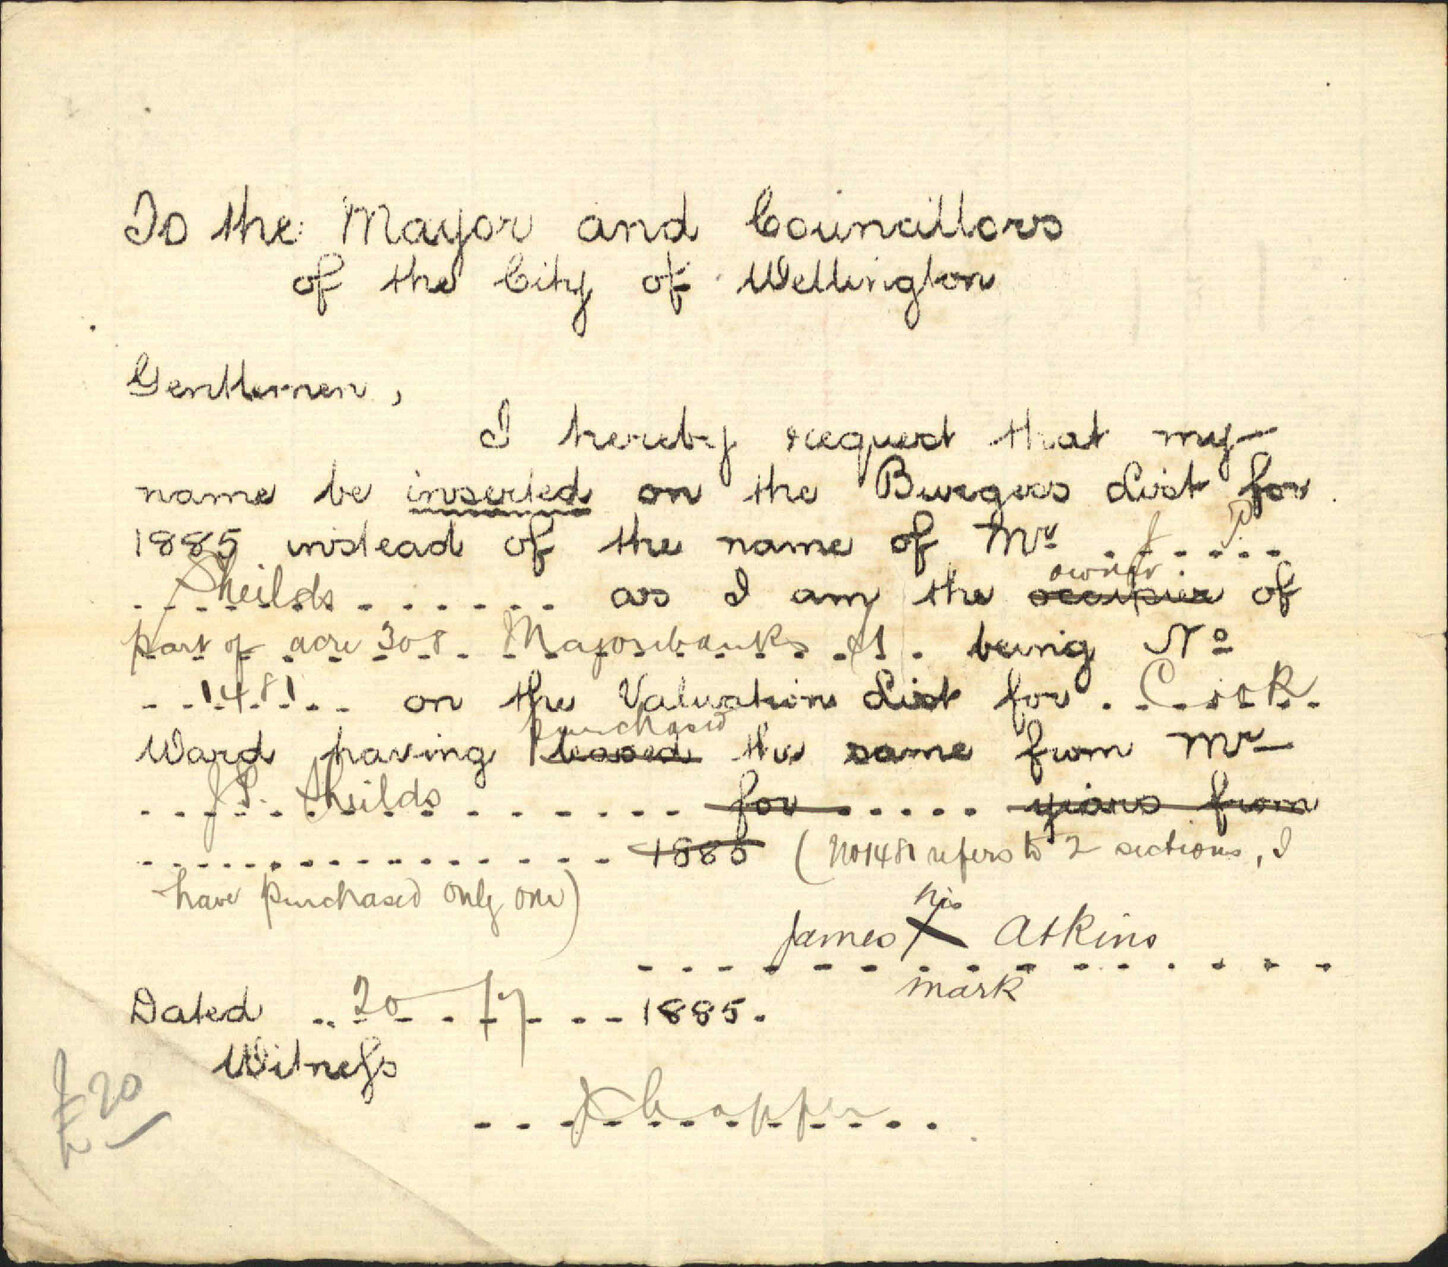 To the Mayor and Councillors
of the City of Wellington
Gentlemen,
I hereby request that my
name be inserted on the Burgess List for
1885 instead of the name of Mr J. P.
Sheilds as I am the owner occupier of
part of acre 308 Majoribanks St. being No
1481 on the Valuation List for Cook
Ward having purchased leased the same from Mr
J P. Sheilds for ..... years from
1885 (No 1481 refers to 2 sections, I
have purchased only one)
James his X mark Atkins
Dated 20/7 1885.
Witness
J Capper
£20